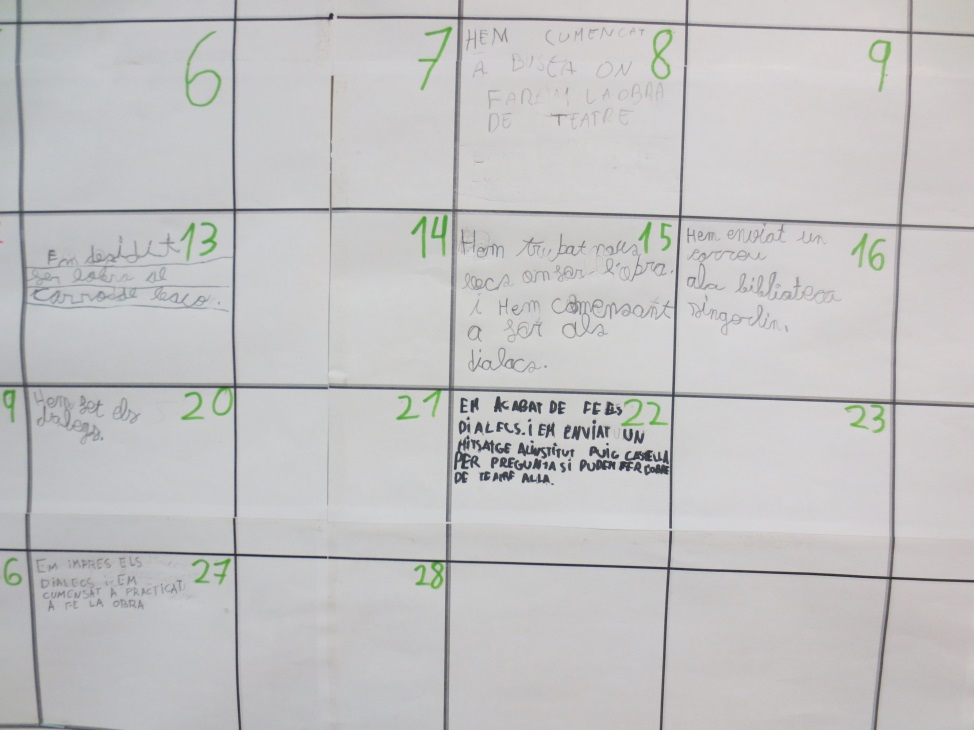 6
7
HEM CUMENCAT 8
A BUSCA ON
FAREM LA OBRA
DE TEATRE
9
Em desidit 13
fer lobra al
Carrosde
14
Hem trubat nous 15
locs on fer l'obra.
i Hem comensant
a fer als
dialacs.
Hem enviat un 16
correu
ala bibliateca
singerlin.
9
Hem fet els 20
dialegs.
21
EM ACABAT DE FE ELS 22
DIALECS. I EM ENVIAT UN
MITSATGE ALINSTITUT PUIG CASTELLA
PER PREGUNTA SI PUDEM FER
DE TEATRE ALLA.
23
6
EM IMPRES ELS 27
DIALECS. I EM
CUMENSAT A PRACTICAT
A FE LA OBRA
28